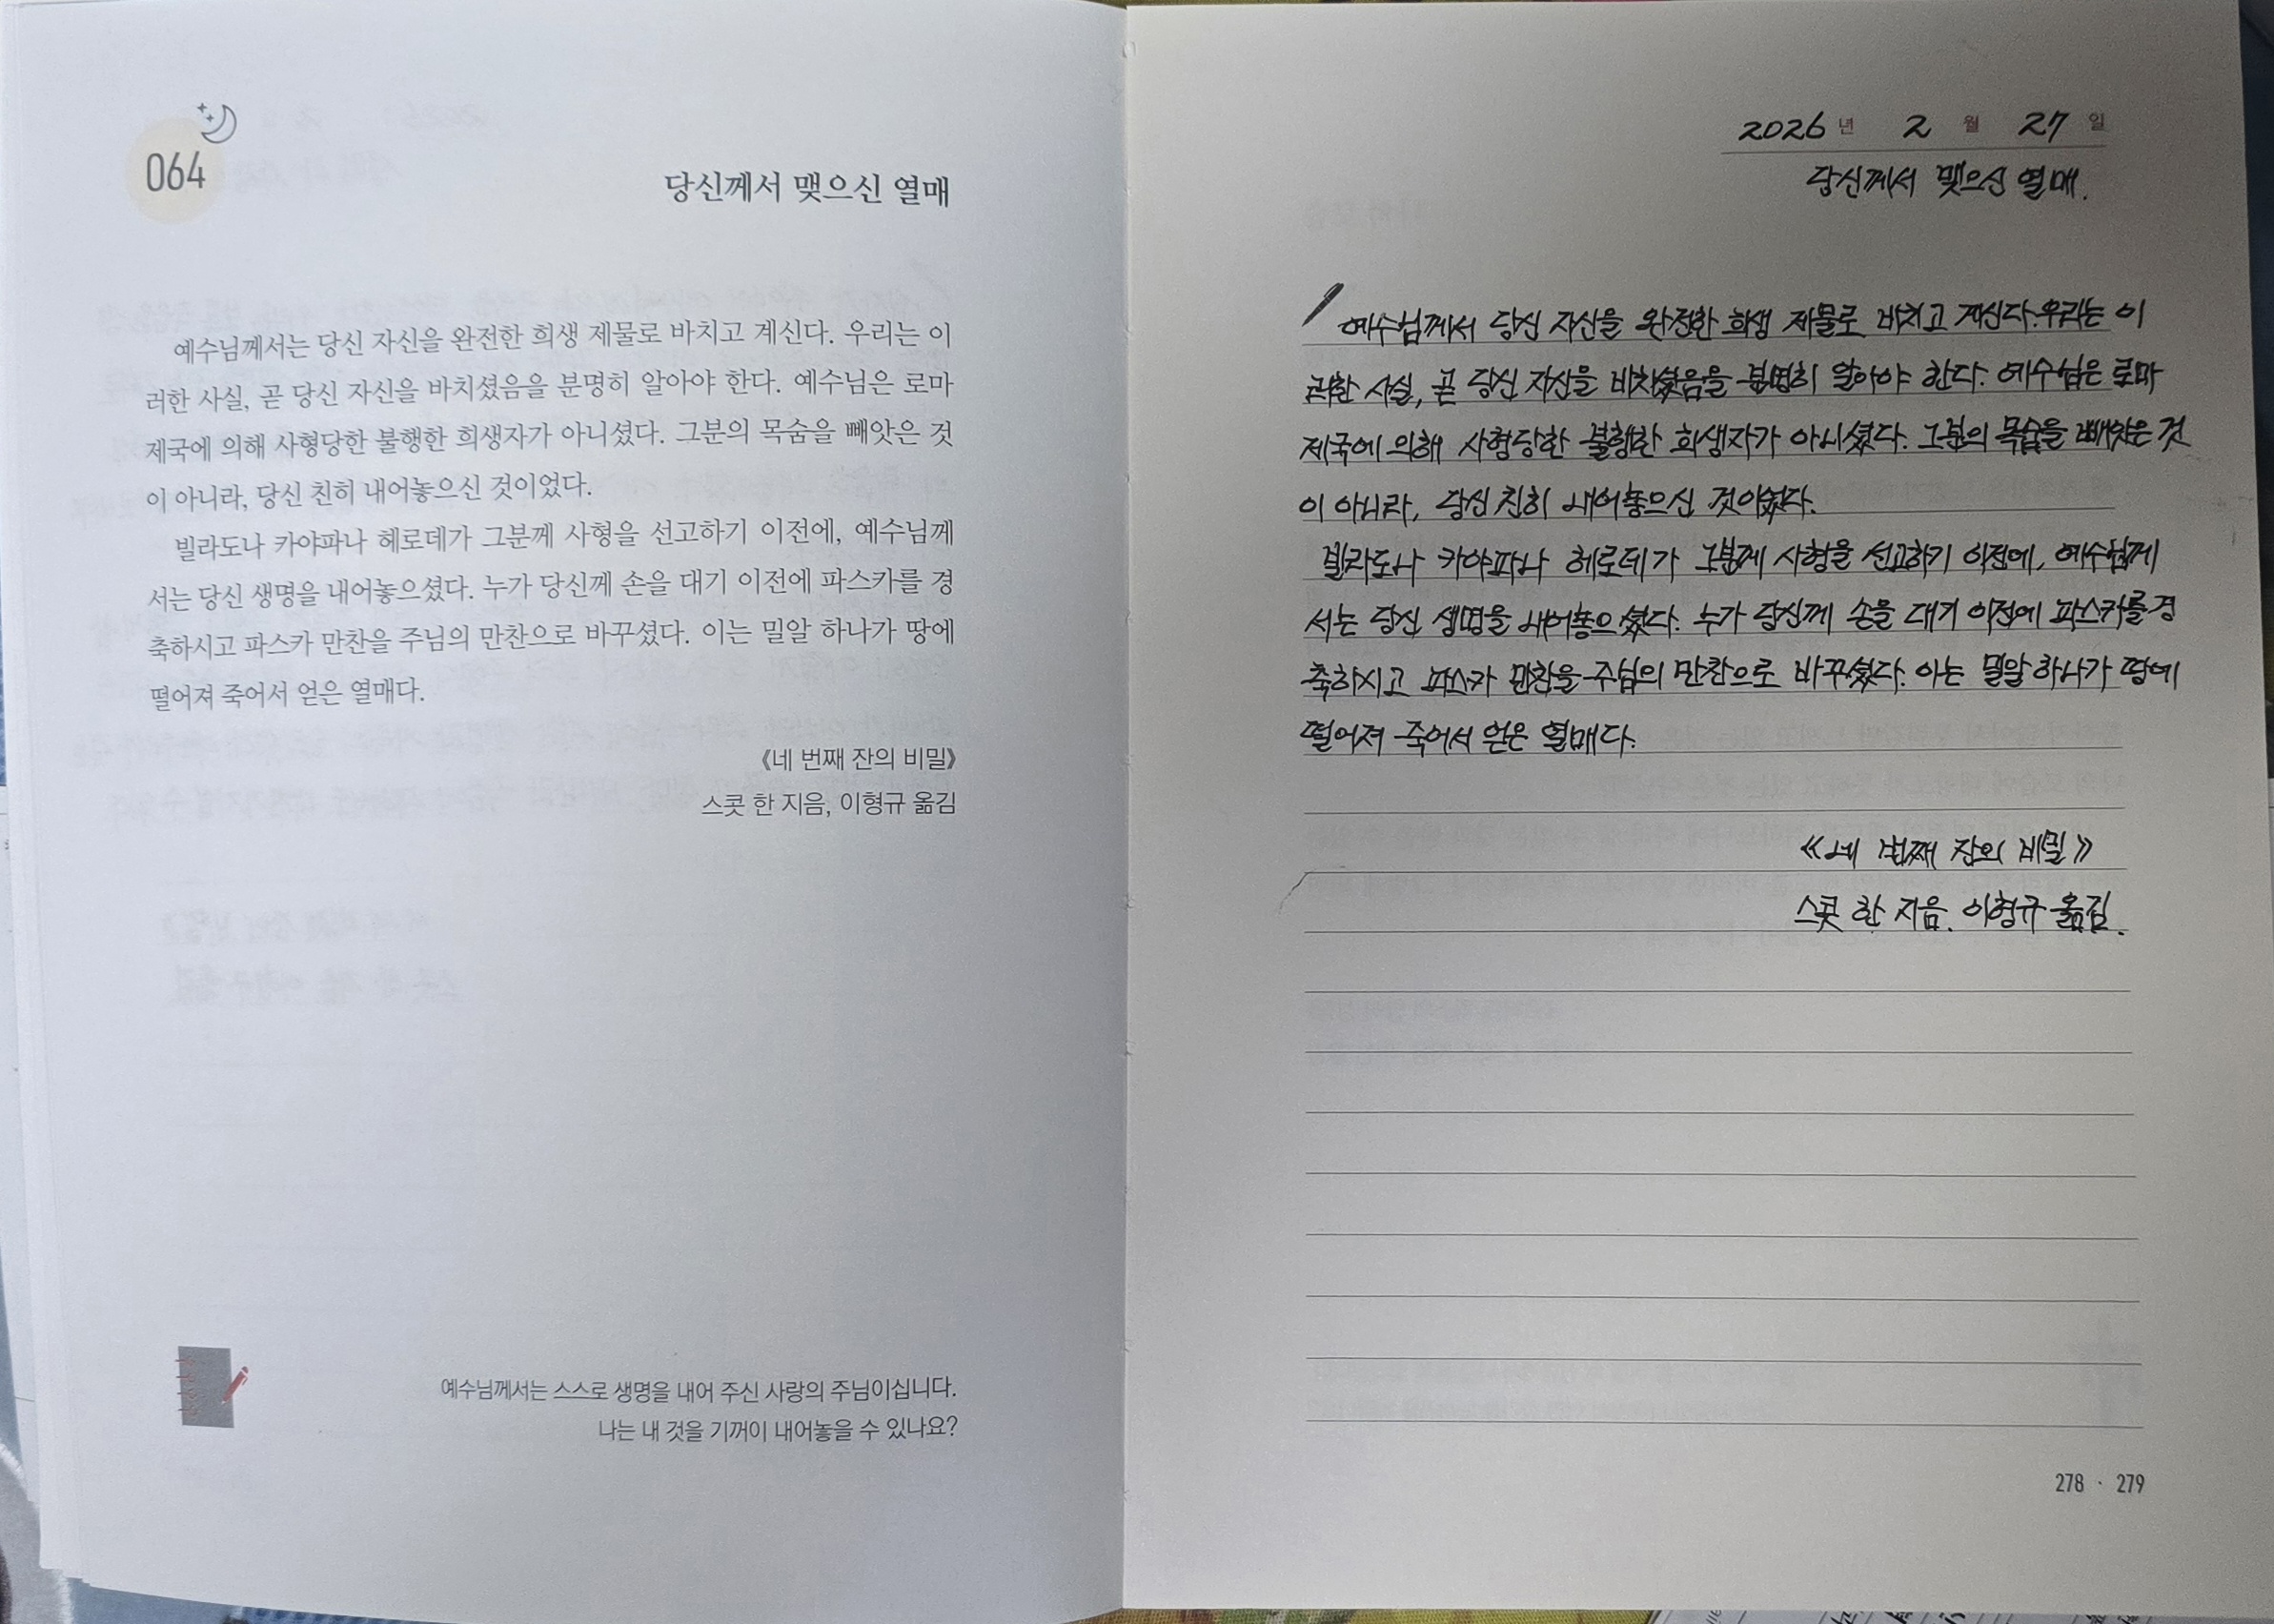 064
당신께서 맺으신 열매
예수님께서는 당신 자신을 완전한 희생 제물로 바치고 계신다. 우리는 이
러한 사실, 곧 당신 자신을 바치셨음을 분명히 알아야 한다. 예수님은 로마
제국에 의해 사형당한 불행한 희생자가 아니셨다. 그분의 목숨을 빼앗은 것
이 아니라, 당신 친히 내어놓으신 것이었다.
빌라도나 카야파나 헤로데가 그분께 사형을 선고하기 이전에, 예수님께
서는 당신 생명을 내어놓으셨다. 누가 당신께 손을 대기 이전에 파스카를 경
축하시고 파스카 만찬을 주님의 만찬으로 바꾸셨다. 이는 밀알 하나가 땅에
떨어져 죽어서 얻은 열매다.
《네 번째 잔의 비밀》
스콧 한 지음, 이형규 옮김
예수님께서는 스스로 생명을 내어 주신 사랑의 주님이십니다.
나는 내 것을 기꺼이 내어놓을 수 있나요?
2026년 2월 27일
당신께서 맺으신 열매.
예수님께서 당신 자신을 완전한 희생 제물로 바치고 계신다. 우리는 이
러한 사실, 곧 당신 자신을 바치셨음을 분명히 알아야 한다. 예수님은 로마
제국에 의해 사형당한 불행한 희생자가 아니셨다. 그분의 목숨을 빼앗은 것
이 아니라, 당신 친히 내어놓으신 것이었다.
빌라도나 카야파나 헤로데가 그분께 사형을 선고하기 이전에, 예수님께
서는 당신 생명을 내어놓으셨다. 누가 당신께 손을 대기 이전에 파스카를 경
축하시고 파스카 만찬을 주님의 만찬으로 바꾸셨다. 이는 밀알 하나가 땅에
떨어져 죽어서 얻은 열매다.
《네 번째 잔의 비밀》
스콧 한 지음. 이형규 옮김.
278 · 279